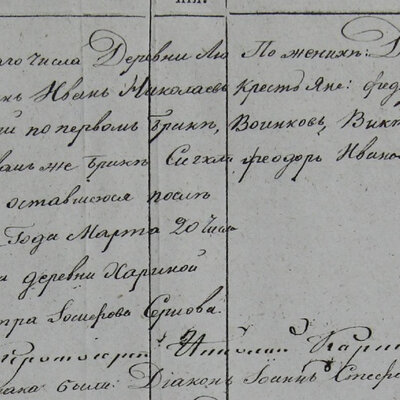 аго числа Деревни Лю По женихѣ: Д
нъ Иванъ Николаевъ крестьяне: Фед
ій по первомъ бракѣ, Воинковъ, Викт
вымъ же бракѣ Феодоръ Ивано
оставшеюся послѣ
Года Марта 20 числа
деревни Хариной
тра
Протоіерей Николай
рака были: Діаконъ Іоаннъ Стефа